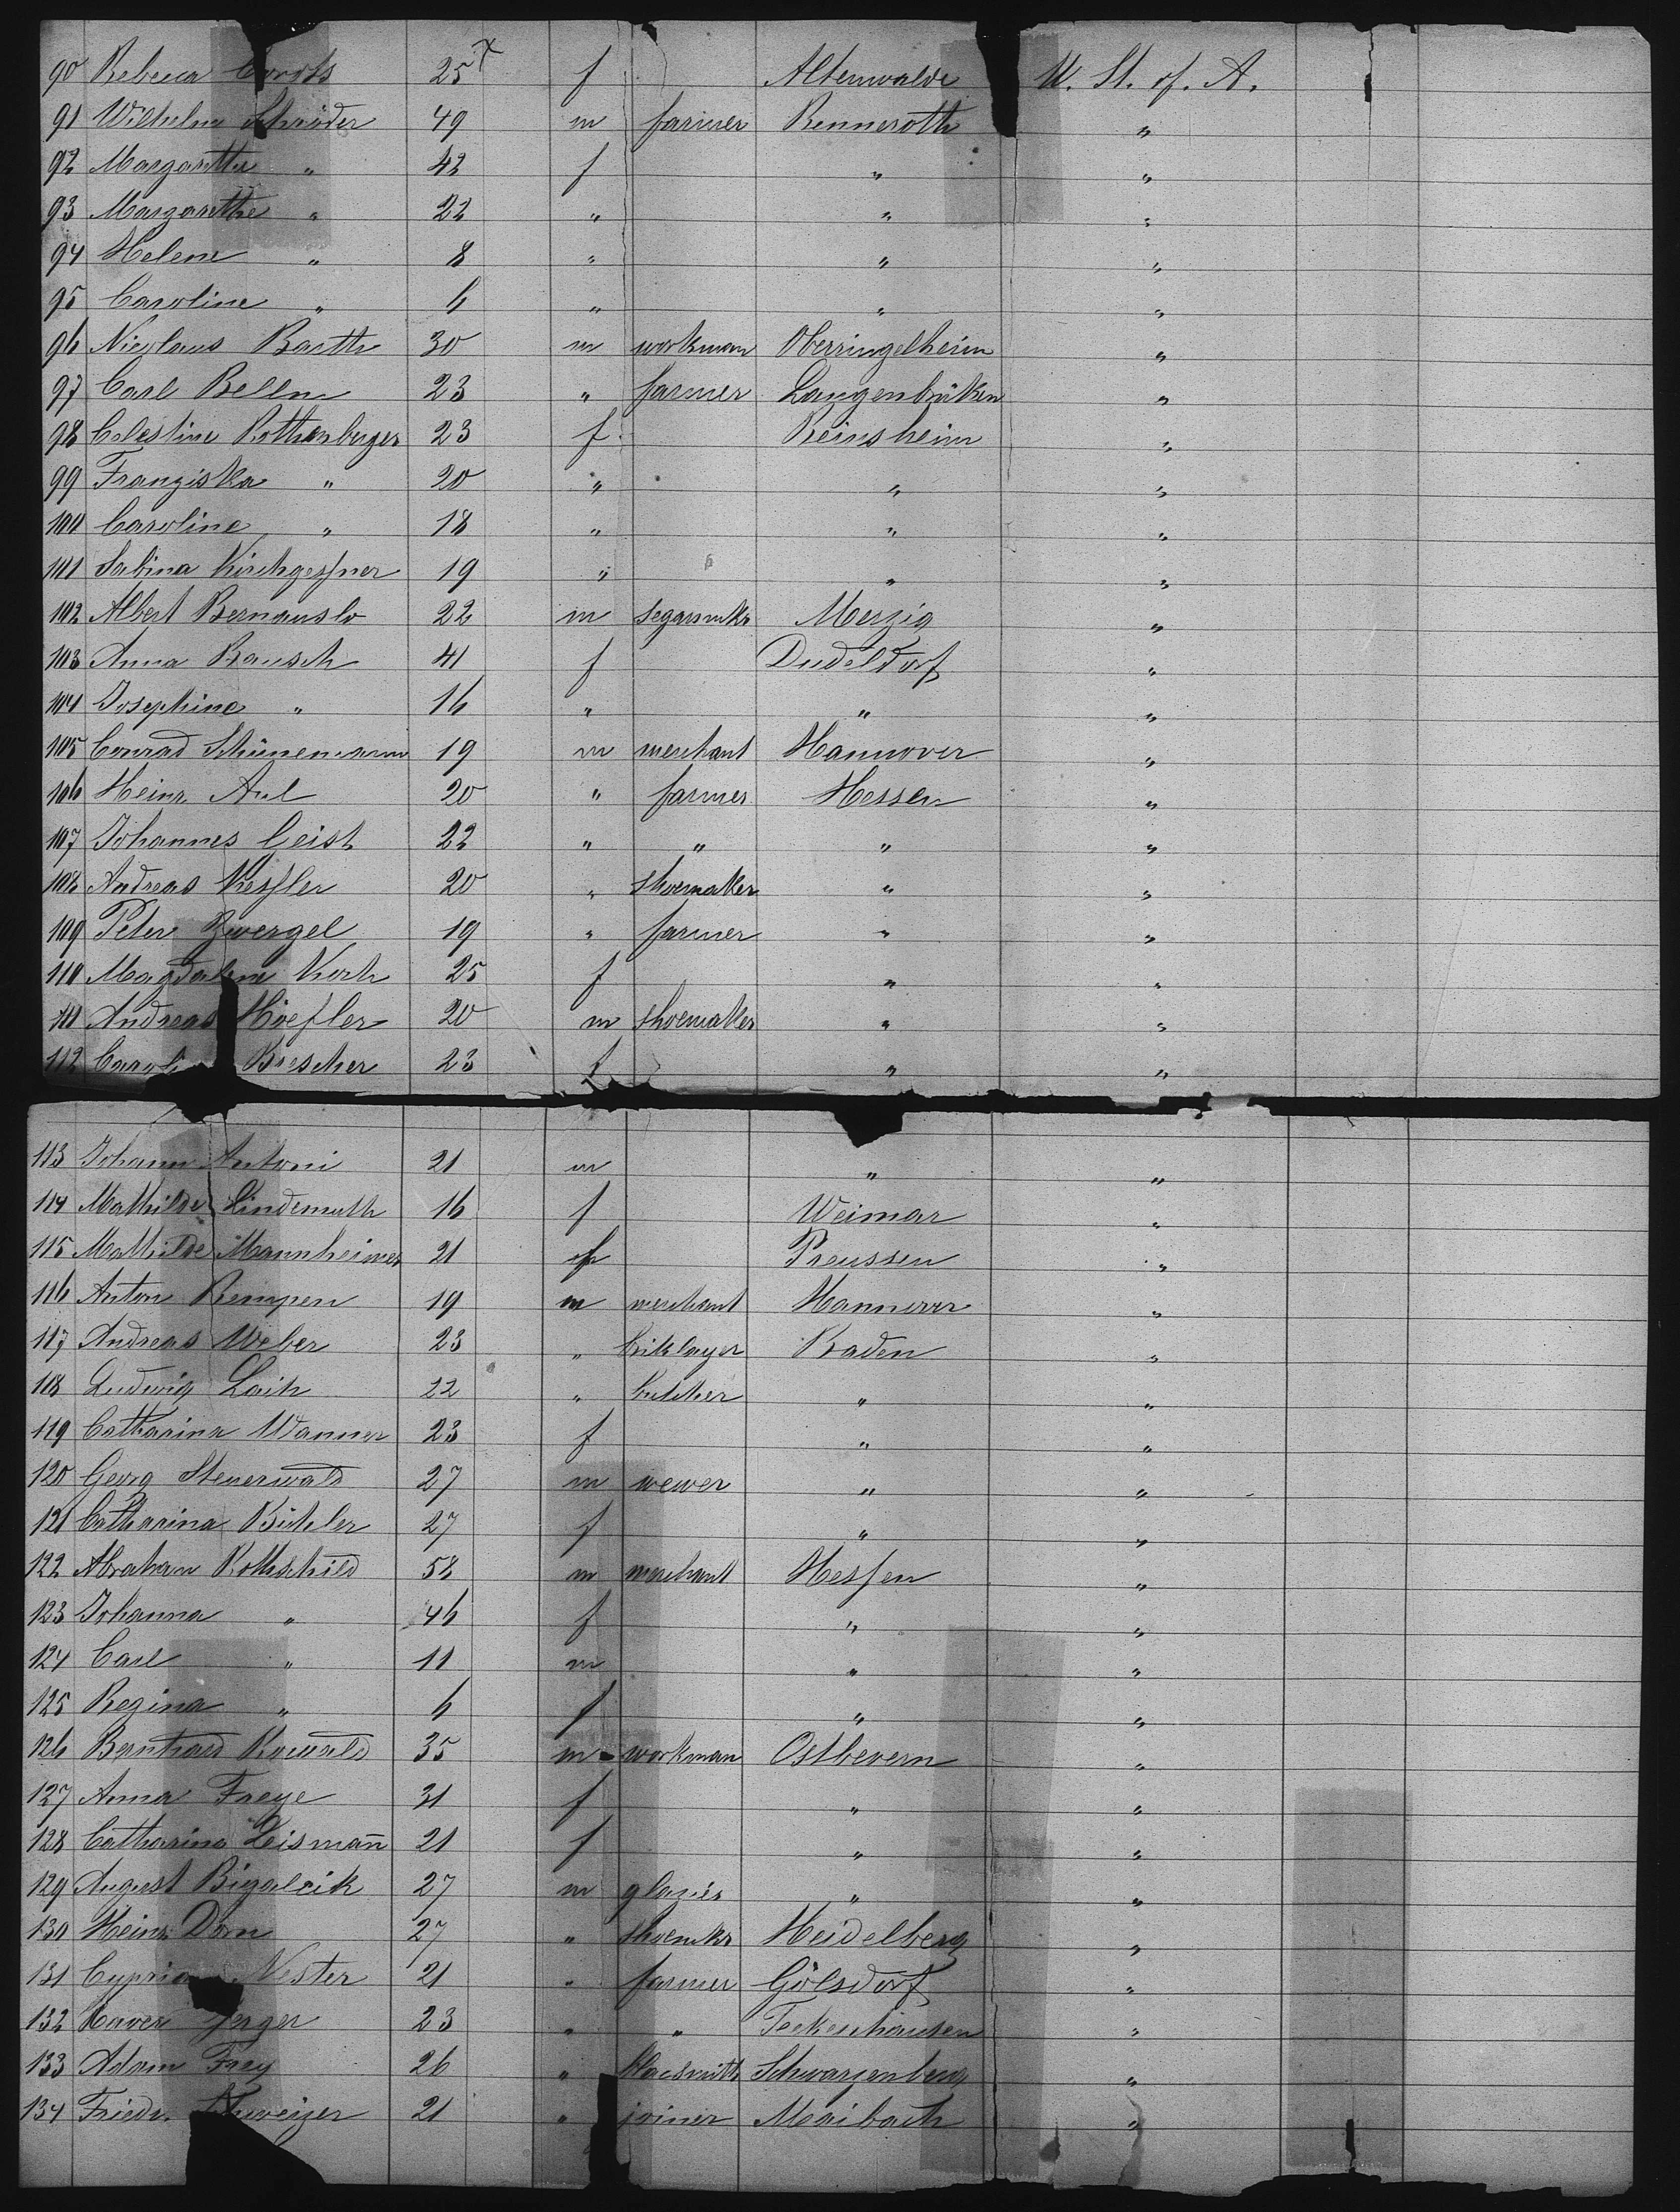 90 Rebecca 25 x f Altenwalde U. St. of. A.
91 Wilhelm Schröder 49 m farmer Renneroth "
92 Margarethe " 42 f " "
93 Margarethe " 22 " " "
94 Helene " 8 " " "
95 Caroline " 6 " " "
96 Nicolaus Barth 30 m workman Oberringelheim "
97 Carl Bellm 23 " farmer Langenbrüken "
98 Celestine Rothenberger 23 f. Reinsheim "
99 Franziska " 20 " " "
100 Caroline " 18 " " "
101 Sabina Kirchgessner 19 " " "
102 Albert 22 m segarmkr Merzig "
103 Anna Bausch 41 f Dudeldorf "
104 Josephine " 16 " " "
105 Conrad Schünemann 19 m merchant Hannover "
106 Heinr. Aul 20 " farmer Hessen "
107 Johannes Geist 22 " " " "
108 Andreas Kessler 20 " shoemaker " "
109 Peter Zwergel 19 " farmer " "
110 Magdalene Koch 25 f " "
111 Andreas Hoefler 20 m shoemaker " "
112 Brescher 23 f " "
113 Johann Antoni 21 m " "
114 Mathilde Lindemuth 16 f Weimar "
115 Mathilde Mannheimer 21 f Preussen "
116 Anton Rempen 19 m merchant Hannover "
117 Andreas Weber 23 " briklayer Baden "
118 Ludwig 22 " butcher " "
119 Catharina Wanner 23 f " "
120 Georg Steuerwald 27 m wewer " "
121 Catharina Büchler 27 f " "
122 Abraham Rothschild 58 m merchant Hessen "
123 Johanna " 46 f " "
124 Carl " 11 m " "
125 Regina " 6 f " "
126 Bernhard 35 m workman Ostbevern "
127 Anna Freye 31 f " "
128 Catharina Leismañ 21 f " "
129 August 27 m glazier " "
130 Heinr. Dorn 27 " shoemkr Heidelberg "
131 Nester 21 " farmer Gölsdorf "
132 Xaver Jerger 23 " " "
133 Adam Frey 26 " blacsmith Schwarzenberg "
134 Friedr. Schweizer 21 " joiner Maibach "